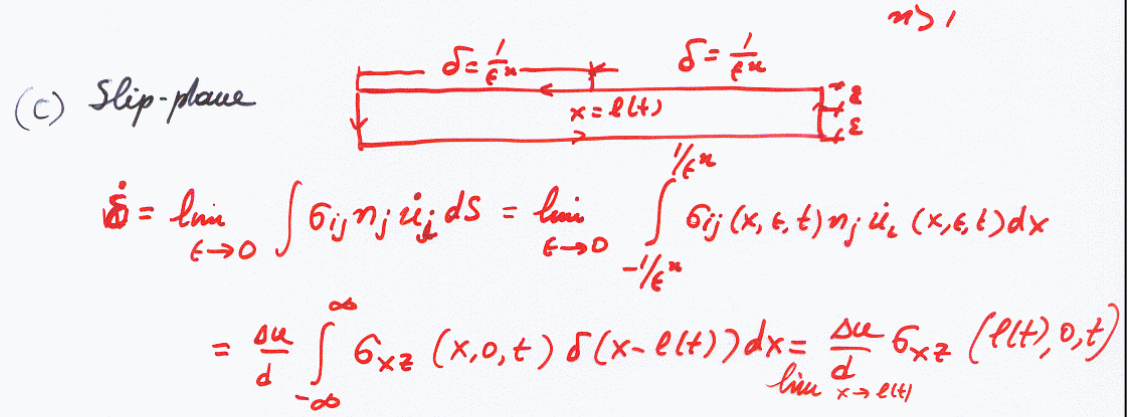 n>1
δ=1/ϵⁿ δ=1/ϵⁿ
(c) Slip-plane x=l(t) ε
ε
= lim ϵ→0 ∫ σij nj u̇i dS = lim ϵ→0 ∫_{-1/ϵⁿ}^{1/ϵⁿ} σij (x,ϵ,t) nj u̇i (x,ϵ,t) dx
= Δu/d ∫_{-∞}^{∞} σxz (x,0,t) δ(x-l(t)) dx = Δu/d lim x→l(t) σxz (l(t),0,t)